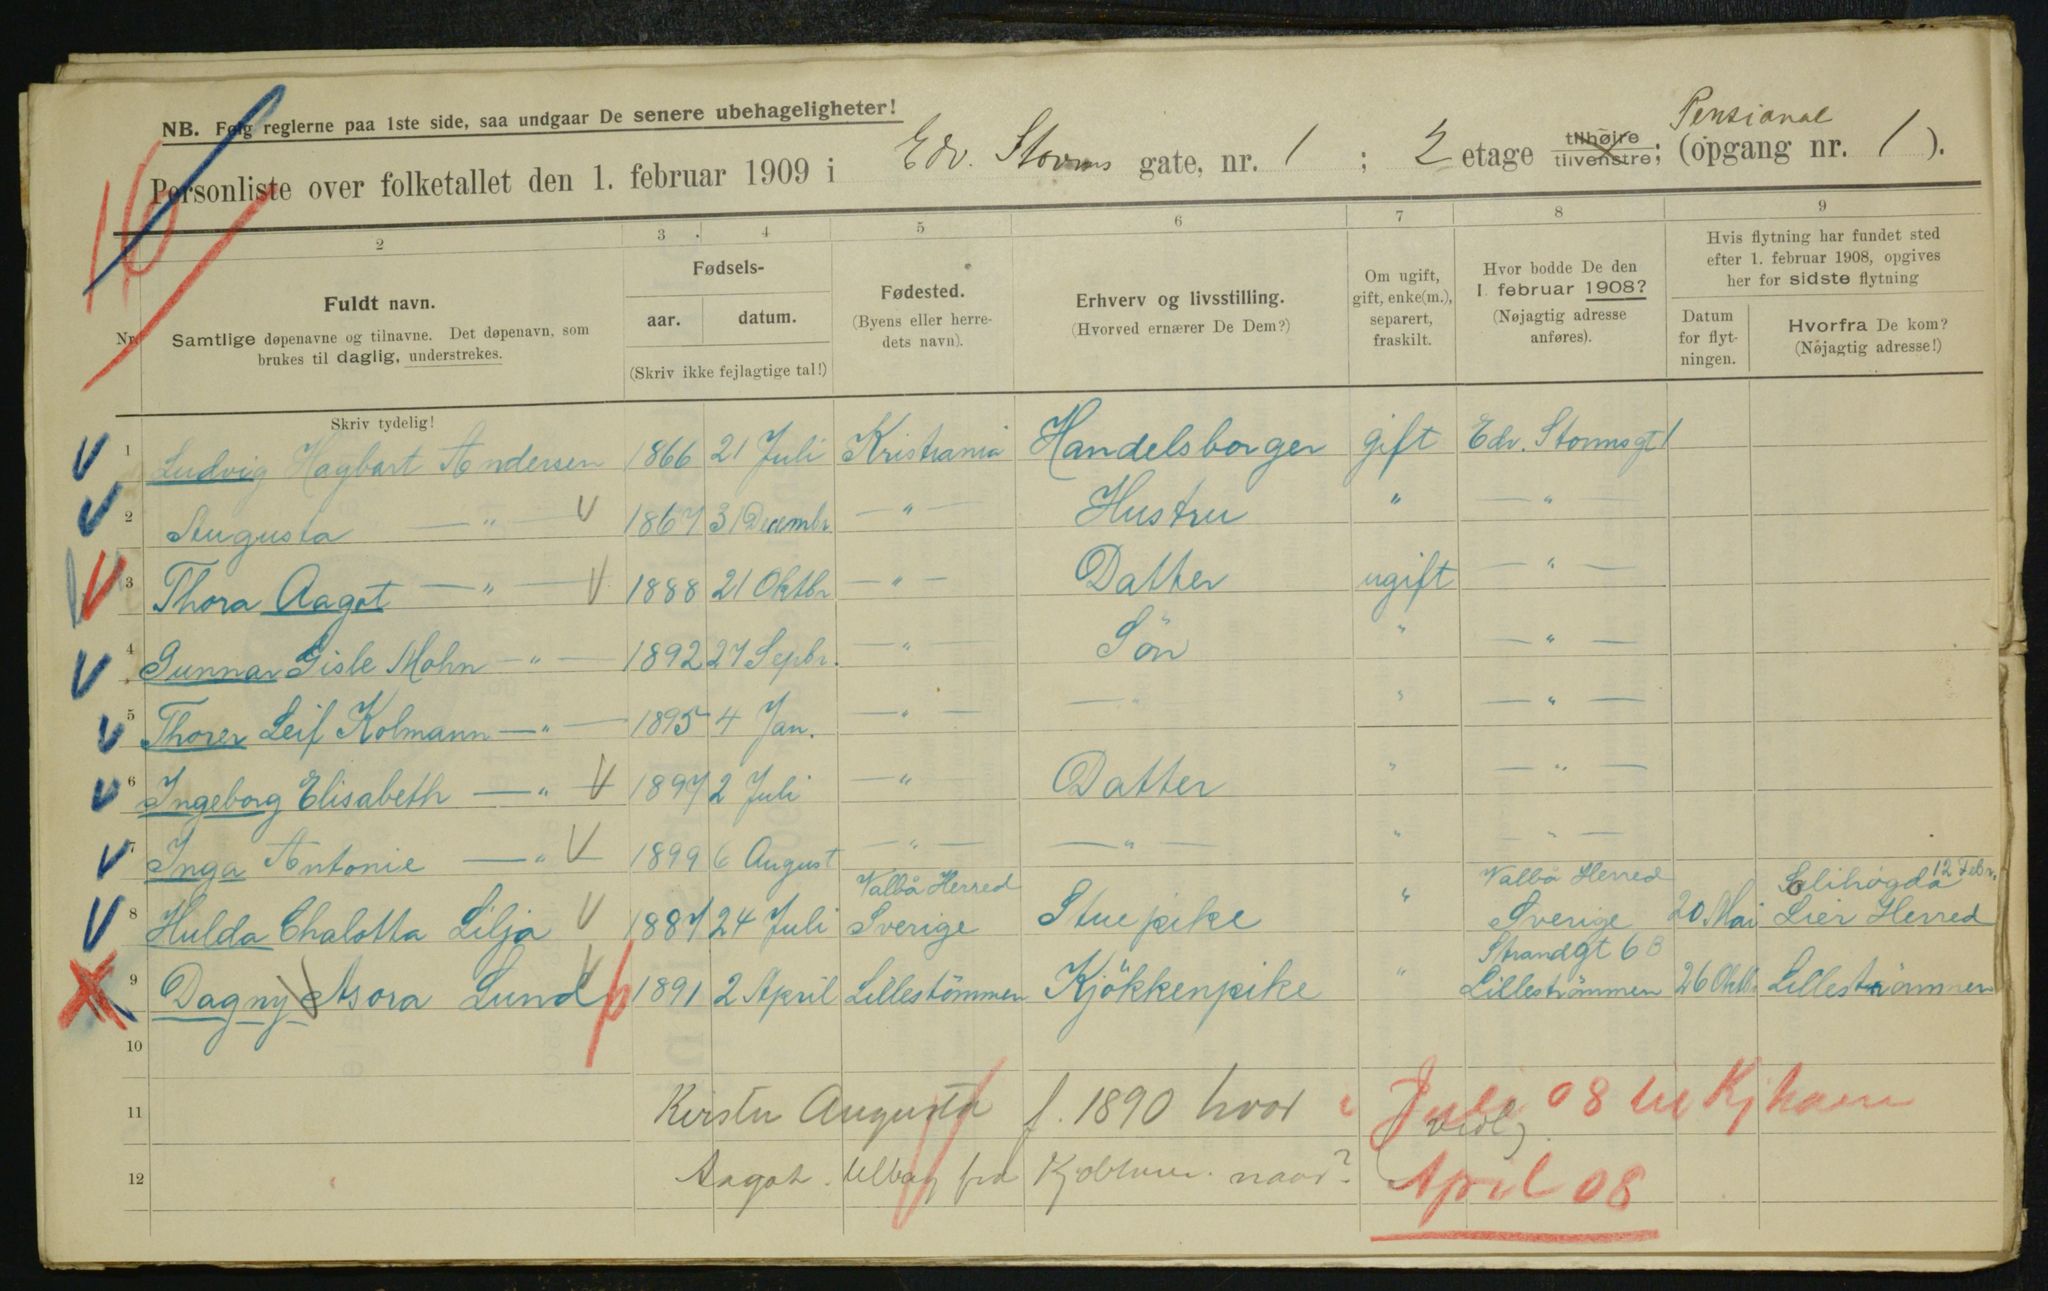 NB. Følg reglerne paa 1ste side, saa undgaar De senere ubehageligheter!
Personliste over folketallet den 1. februar 1909 i Edv. Storms gate, nr. 1; 2 etage tilhøire tilvenstre; (opgang nr. 1).
Pensionat
16
2 3 4 5 6 7 8 9
Nr.
Fuldt navn.
Samtlige døpenavne og tilnavne. Det døpenavn, som
brukes til daglig, understrekes.
Fødsels-
aar. datum.
(Skriv ikke fejlagtige tal!)
Fødested.
(Byens eller herre-
dets navn).
Erhverv og livsstilling.
(Hvorved ernærer De Dem?)
Om ugift,
gift, enke(m.),
separert,
fraskilt.
Hvor bodde De den
1. februar 1908?
(Nøjagtig adresse
anføres).
Hvis flytning har fundet sted
efter 1. februar 1908, opgives
her for sidste flytning
Datum
for flyt-
ningen.
Hvorfra De kom?
(Nøjagtig adresse!)
Skriv tydelig!
1 Ludvig Hagbart Andersen 1866 21 Juli Kristiania Handelsborger gift Edv. Stormsgt 1
2 Augusta — " — 1867 31 Decembr — " — Hustru " — " —
3 Thora Aagot — " — 1888 21 Oktbr — " — Datter ugift — " —
4 Gunnar Gisle Mohn — " — 1892 27 Sepbr. — " — Søn " — " —
5 Thorer Leif Kolmann — " — 1895 4 Jan. — " — — " — " — " —
6 Ingeborg Elisabeth — " — 1897 2 Juli — " Datter " — " —
7 Inga Antonie — " — 1899 6 August — " — — " — " — " —
Valbo Herred Valbo Herred Solihøgda 12 Febr.
8 Hulda Chalotta Lilja 1887 24 Juli Sverige Stuepike " Sverige 20 Mai Lier Herred
Strandgt 6 B
9 Dagny Asora Lund 1891 2 April Lillestömmen Kjökkenpike " Lilleströmmen 26 Oktb. Lilleströmmen
10
11 Kirsten Augusta f. 1890 hvor ? Juli 08 til Kjhavn
12 Aagot tilbag fra Kjøbhvn. naar? April 08